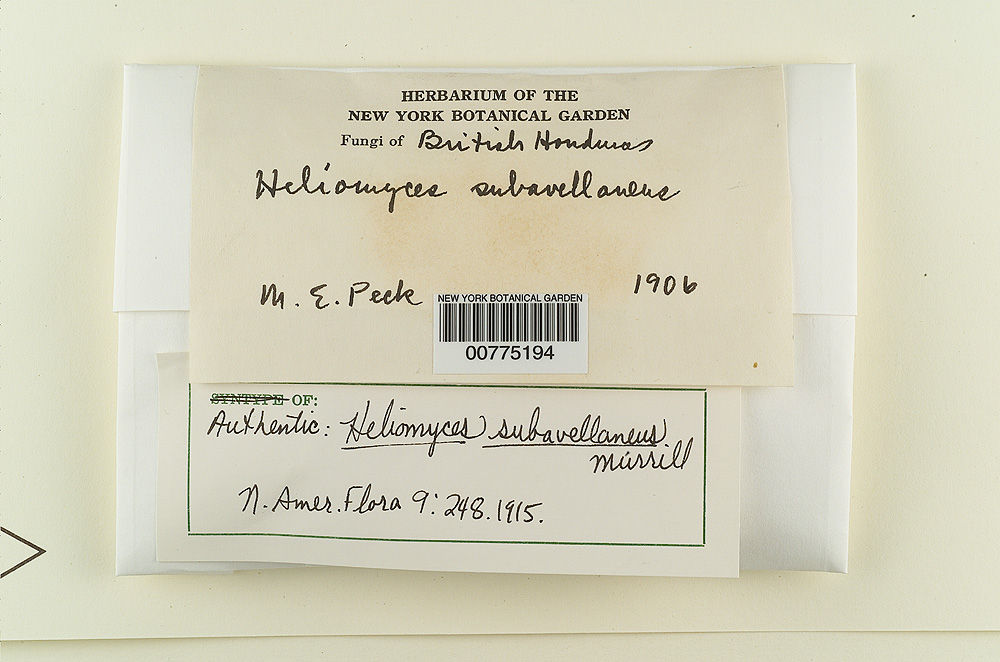 HERBARIUM OF THE
NEW YORK BOTANICAL GARDEN
Fungi of British Honduras
Heliomyces subavellaneus
M. E. Peck 1906
NEW YORK BOTANICAL GARDEN
00775194
SYNTYPE OF:
Authentic: Heliomyces subavellaneus
Murrill
N. Amer. Flora 9: 248. 1915.